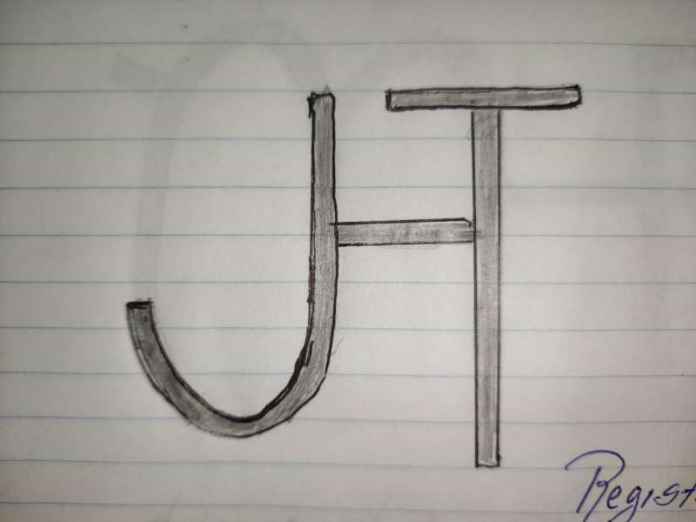 JHT
Regist